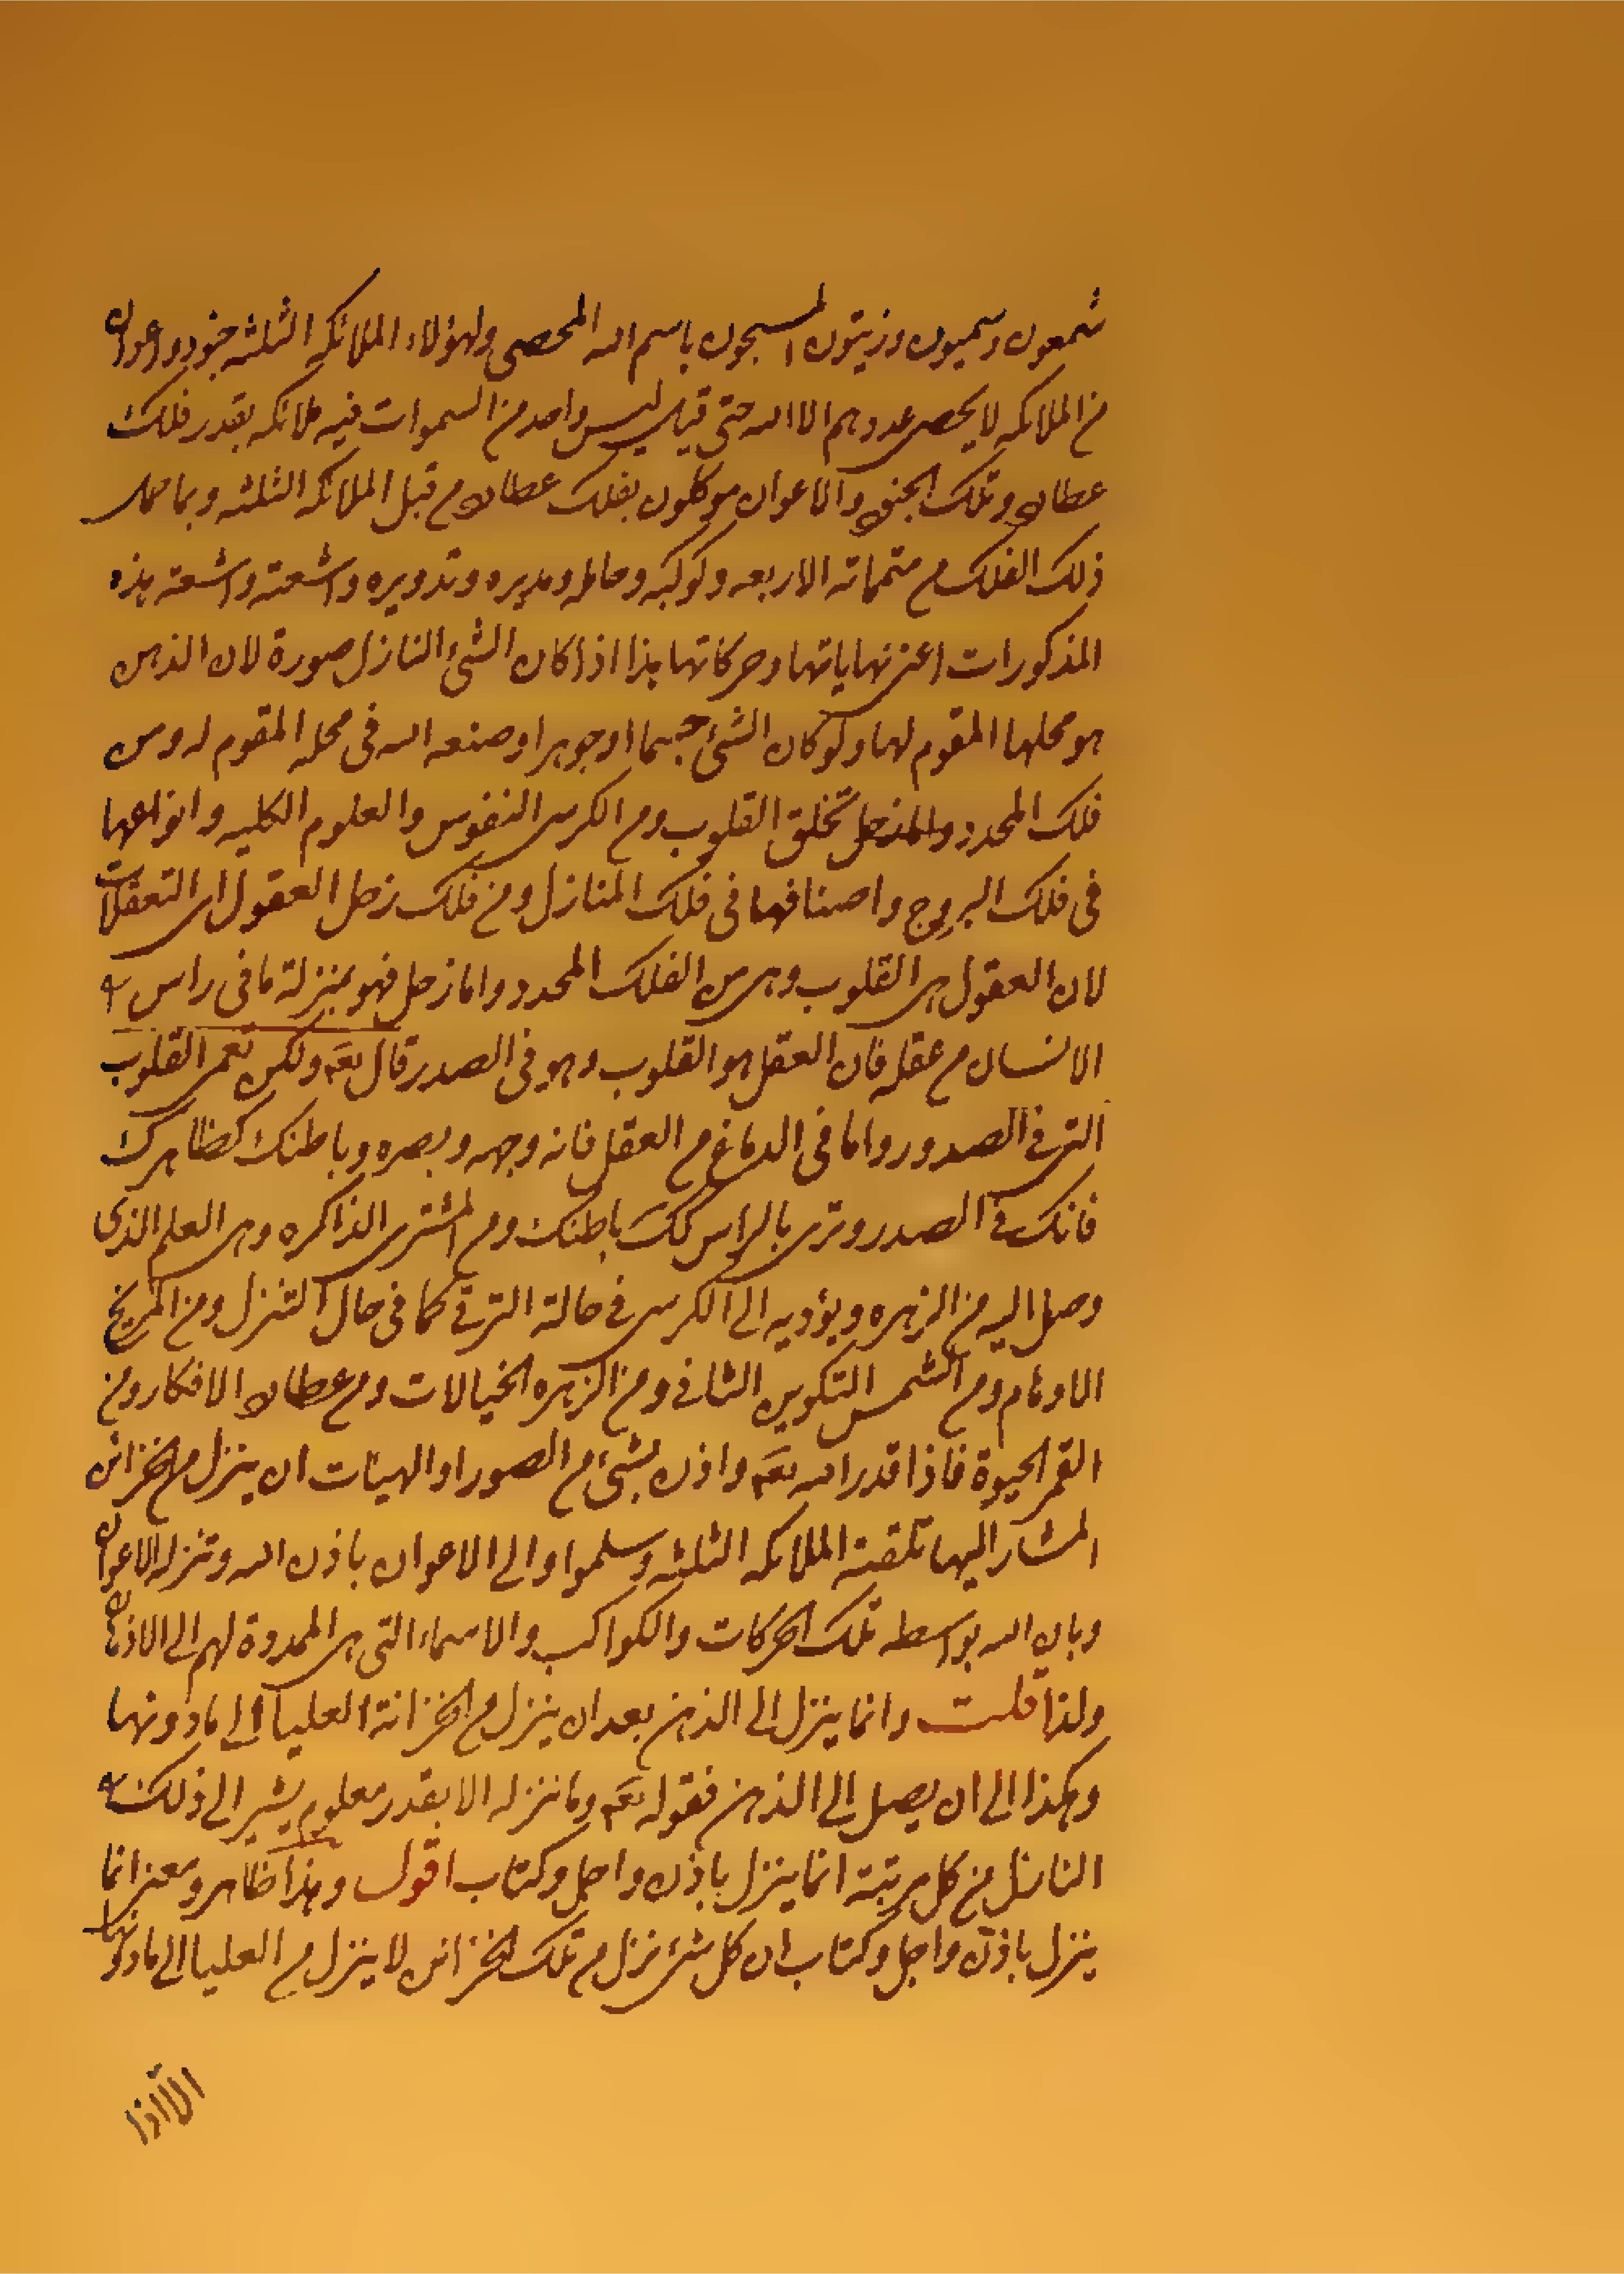 شمعون وسميون وزيتون المسبحون باسم الله المحصى ولهؤلاء الملائكه الثلثه جنود واعوان
من الملائكه لا يحصى عددهم الا الله حتى قيل ليس واحد من السموات فيه ملائكه بقدر فلك
عطارد وتلك الجنود والاعوان موكلون بفلك عطارد من قبل الملائكه الثلثه وبما
ذلك الفلك من متمماته الاربعه وكوكبه وحامله ومديره وتدويره واشعته واشعته هذه
المذكورات اعنى نهاياتها وحركاتها هذا اذا كان الشئ النازل صورة لان الذهن
هو محلها المقوم لها ولو كان الشئ جسما او جوهرا وصنعه الله فى محله المقوم له ومن
فلك المحدد تخلق القلوب ومن الكرسى النفوس والعلوم الكليه وانواعها
فى فلك البروج واصنافها فى فلك المنازل ومن فلك زحل العقول اى التعقلات
لان العقول هى القلوب وهى من الفلك المحدد واما زحل فهو بمنزلة ما فى راس
الانسان من عقله فان العقل هو القلوب وهو فى الصدر قال تعه ولكن تعمى القلوب
التى فى الصدور واما فى الدماغ من العقل فانه وجهه وبصره وباطنك كظاهرك
فانك فى الصدر وترى بالراس كك باطنك ومن المشترى الذاكره وهى العلم الذى
وصل اليه من الزهره ويؤديه الى الكرسى فى حالة الترقى كما فى حال التنزل ومن المريخ
الاوهام ومن الشمس التكوين الثانى ومن الزهره الخيالات ومن عطارد الافكار ومن
القمر الحيوة فاذا قدر الله تعه واذن بشئ من الصور او الهيئات ان ينزل من الخزائن
المشار اليها تلقته الملائكه الثلثه وسلموا والى الاعوان باذن الله وتنزله الاعوان
وبان الله بواسطه تلك الحركات والكواكب والاسماء التى هى الممدوة لهم الى الاذهان
ولذا قلت وانما ينزل الى الذهن بعد ان ينزل من الخزانة العليا الى ما دونها
وهكذا الى ان يصل الى الذهن فقوله تعه وما ننزله الا بقدر معلوم يشير الى ذلك
النازل من كل مرتبة انما ينزل باذن واجل وكتاب اقول وهذا ظاهر ومعنى انما
ينزل باذن واجل وكتاب ان كل شئ نزل من تلك الخزائن لا ينزل من العليا الى ما دونها
الا اذا